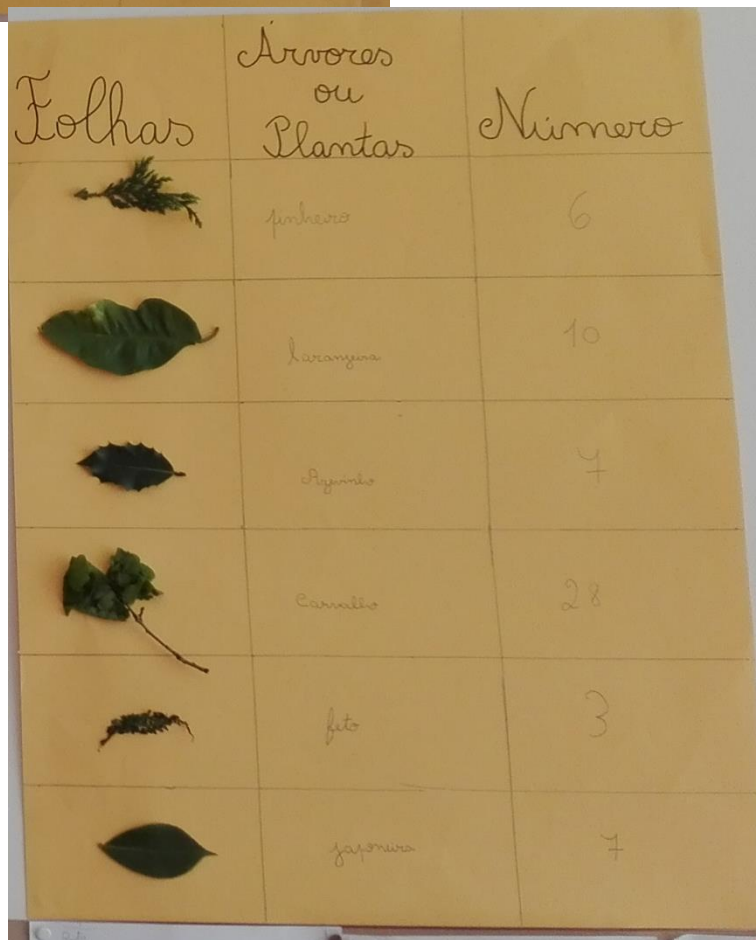 Folhas
Árvores
ou
Plantas
Número
pinheiro
6
laranjeira
10
Azevinho
7
Carvalho
28
feto
3
japoneira
7